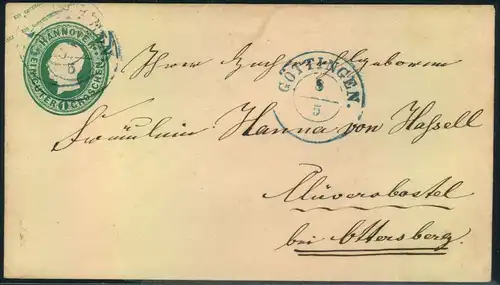 HANNOVER
EIN GUTER GROSCHEN
GÖTTINGEN.
8
5
Ihrer Hochwohlgeboren
Fräulein Hanna von Hassell
Clüversbostel
bei Ottersberg.